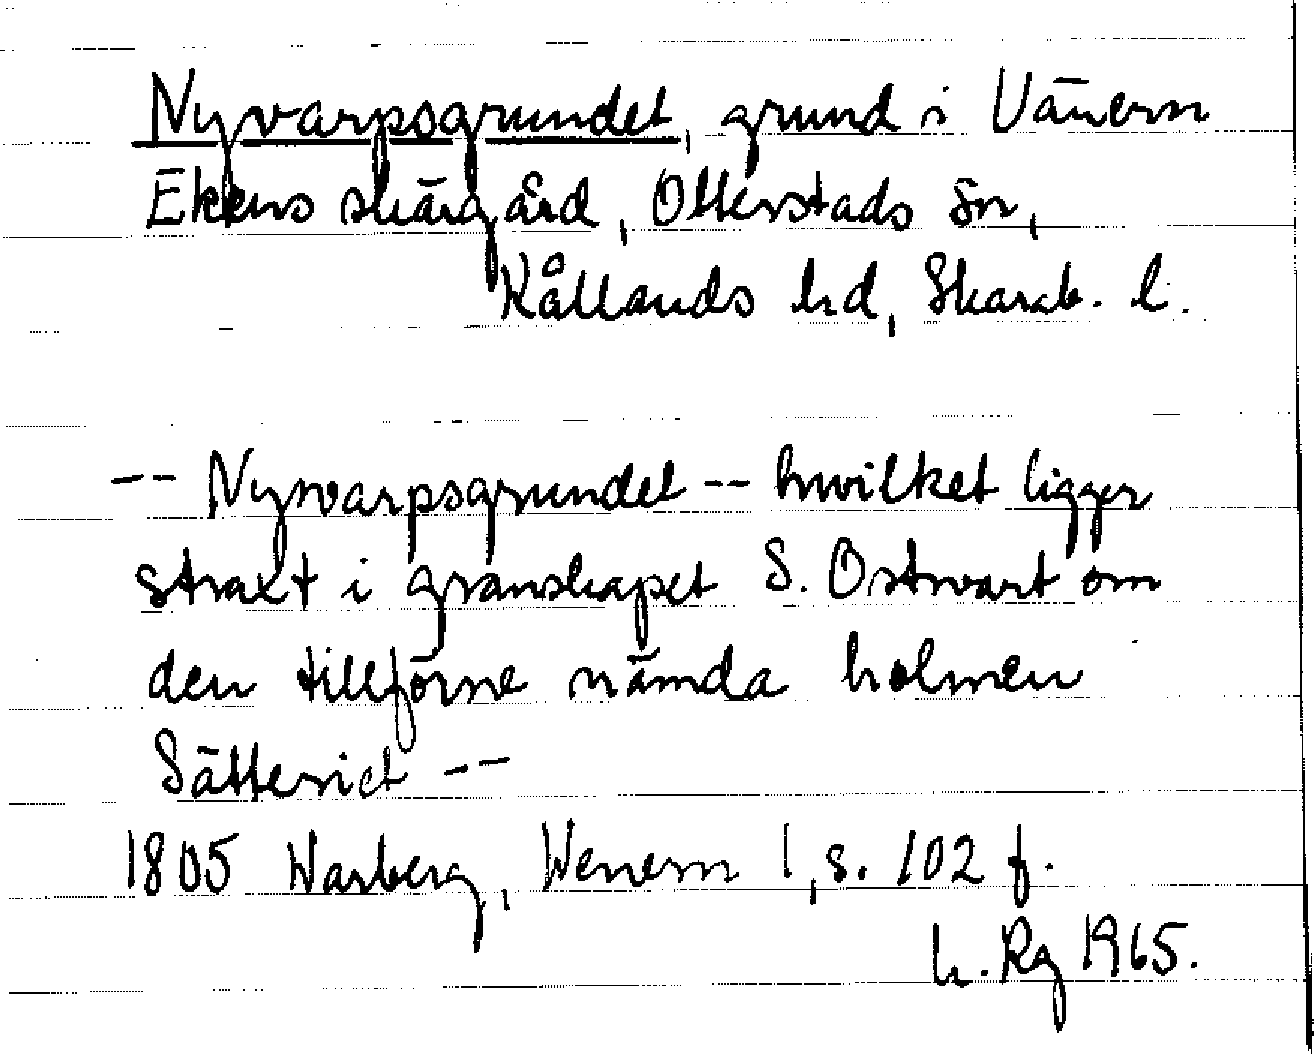 Nyvarpsgrundet, grund i Vänern
Ekens skärgård, Otterstads sn,
Kållands hd, Skarab. l.
-- Nyrvarpsgrundet -- hwilket ligger
straxt i granskapet S. Ostwart om
den tillförne nämda holmen
Sätteriet --
1805 Warberg, Wenern 1, s. 102 f.
h. Rg 1965.